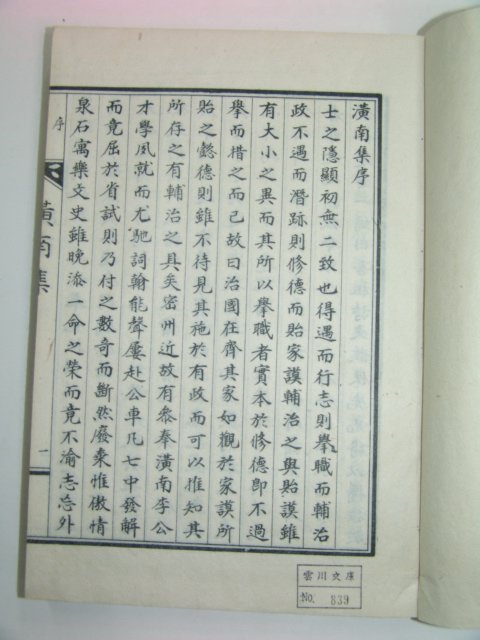 潢南集序
士之隱顯初無二致也得遇而行志則擧職而輔治
政不遇而潛跡則修德而貽家謨輔治之與貽謨雖
有大小之異而其所以擧職者實本於修德即不過
擧而措之而已故曰治國在齊其家如觀於家謨所
貽之懿德則雖不待見其施於有政而可以推知其
所存之有輔治之具矣密州近故有參奉潢南李公
才學夙就而尤馳詞翰能聲屢赴公車凡七中發解
而竟屈於省試則乃付之數奇而斷然廢棄惟傲情
泉石寓樂文史雖晚添一命之榮而竟不渝志忘外
序
潢南集
一
雲川文庫
No. 839